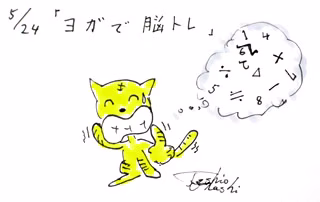 5/24「ヨガで脳トレ」
1 4
2 ×
2 △ 7
5 ÷ 1
÷ 8
Toshio
Ohashi